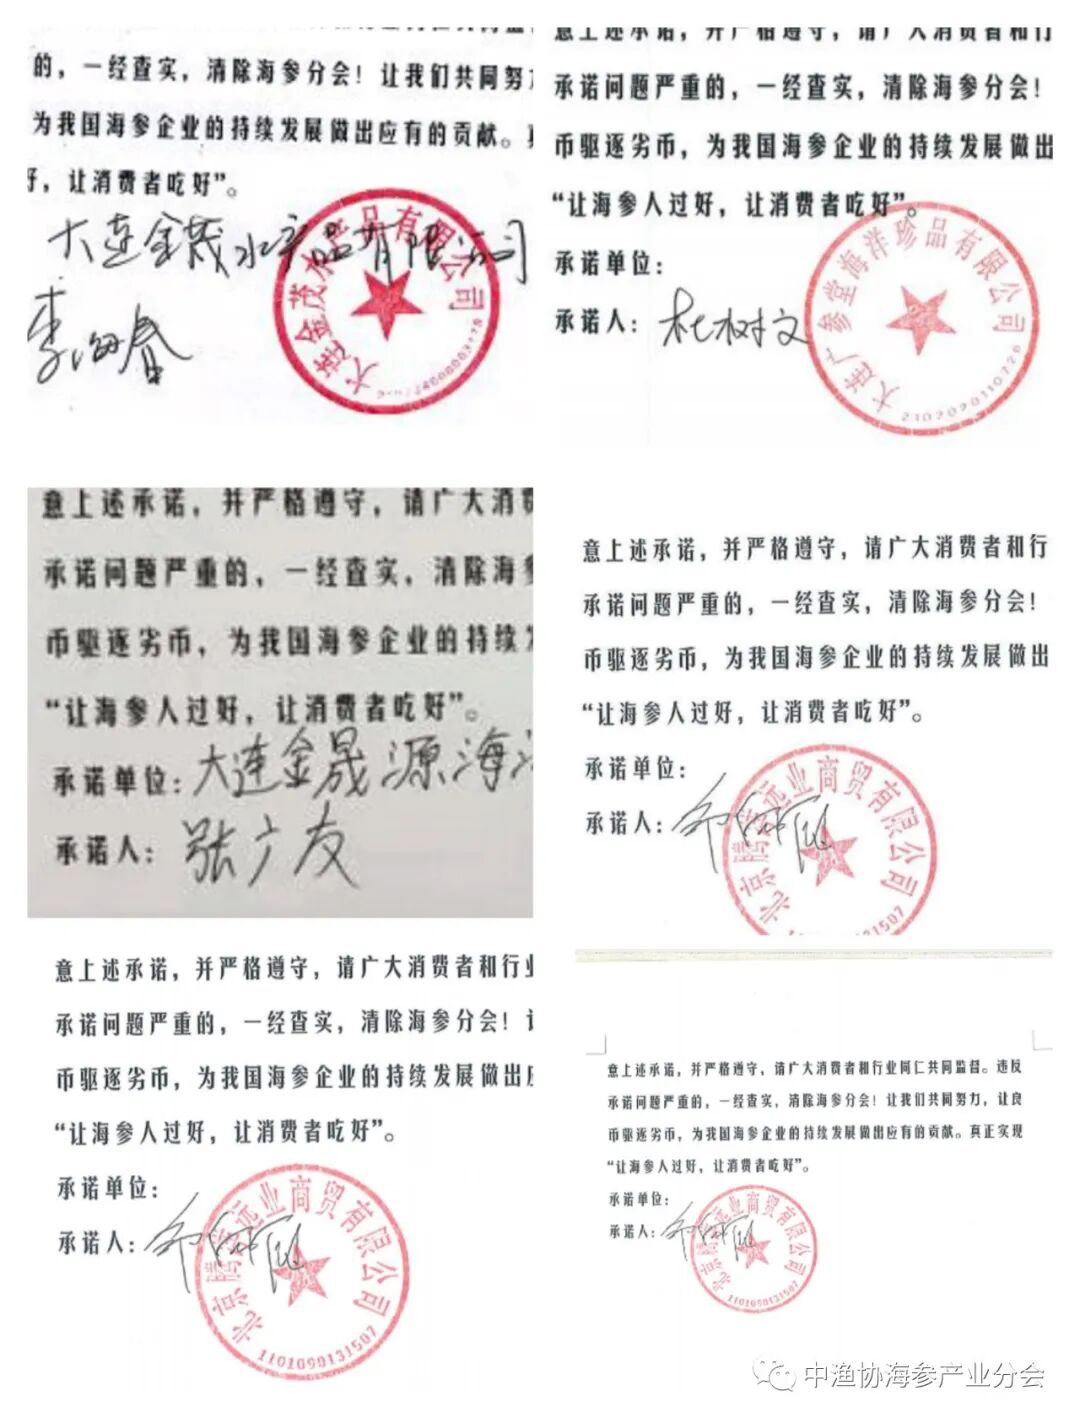 的，一经查实，清除海参分会！让我们共同努力
为我国海参企业的持续发展做出应有的贡献。真
好，让消费者吃好”。
大连金茂水产品有限公司
李海春
大连金茂水产品有限公司
意上述承诺，并严格遵守，请广大消费者和行
承诺问题严重的，一经查实，清除海参分会！
币驱逐劣币，为我国海参企业的持续发展做出
“让海参人过好，让消费者吃好”。
承诺单位：
承诺人：杜树文
大连广参堂海洋珍品有限公司
2102090110728
意上述承诺，并严格遵守，请广大消费
承诺问题严重的，一经查实，清除海参
币驱逐劣币，为我国海参企业的持续发
“让海参人过好，让消费者吃好”。
承诺单位：大连金晟源海
承诺人：张广友
意上述承诺，并严格遵守，请广大消费者和行
承诺问题严重的，一经查实，清除海参分会！
币驱逐劣币，为我国海参企业的持续发展做出
“让海参人过好，让消费者吃好”。
承诺单位：
承诺人：
北京腾远业商贸有限公司
31507
意上述承诺，并严格遵守，请广大消费者和行业
承诺问题严重的，一经查实，清除海参分会！让
币驱逐劣币，为我国海参企业的持续发展做出应
“让海参人过好，让消费者吃好”。
承诺单位：
承诺人：
远业商贸有限公司
1101090131507
意上述承诺，并严格遵守，请广大消费者和行业同仁共同监督。违反
承诺问题严重的，一经查实，清除海参分会！让我们共同努力，让良
币驱逐劣币，为我国海参企业的持续发展做出应有的贡献。真正实现
“让海参人过好，让消费者吃好”。
承诺单位：
承诺人：
远业商贸有限公司
1101090131507
中渔协海参产业分会